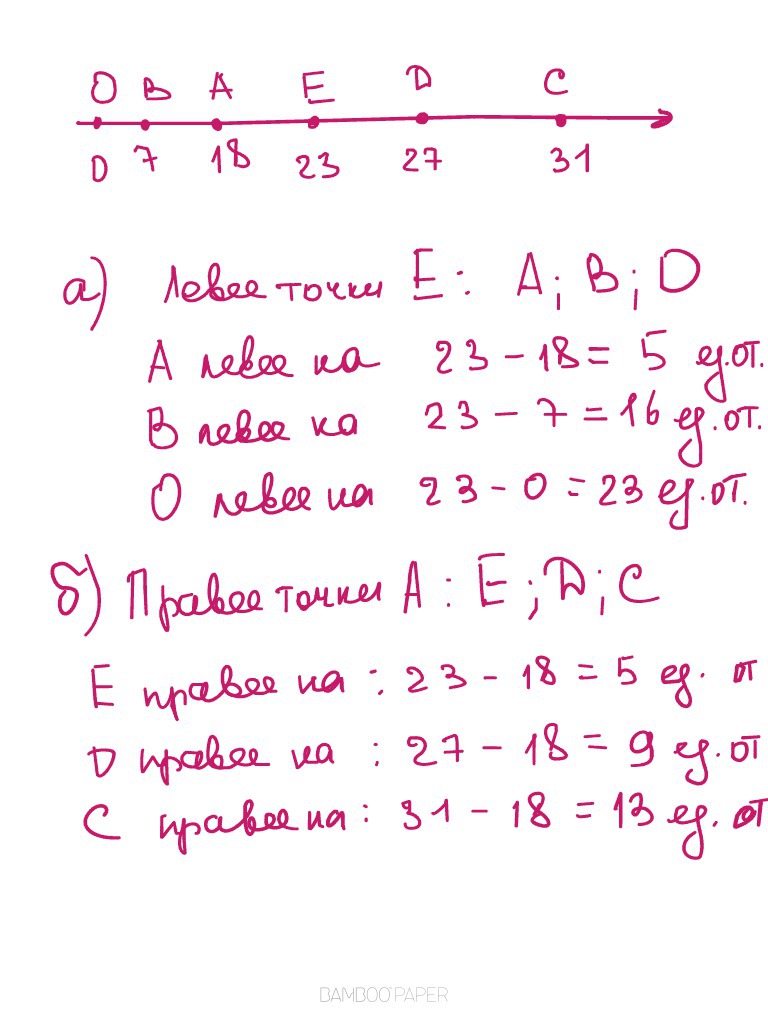 O B A E D C
0 7 18 23 27 31
а) Левее точки E: A; B; O
A левее на 23 - 18 = 5 ед.от.
B левее на 23 - 7 = 16 ед.от.
O левее на 23 - 0 = 23 ед.от.
б) Правее точки A: E; D; C
E правее на: 23 - 18 = 5 ед. от
D правее на: 27 - 18 = 9 ед. от
C правее на: 31 - 18 = 13 ед. от
BAMBOO PAPER